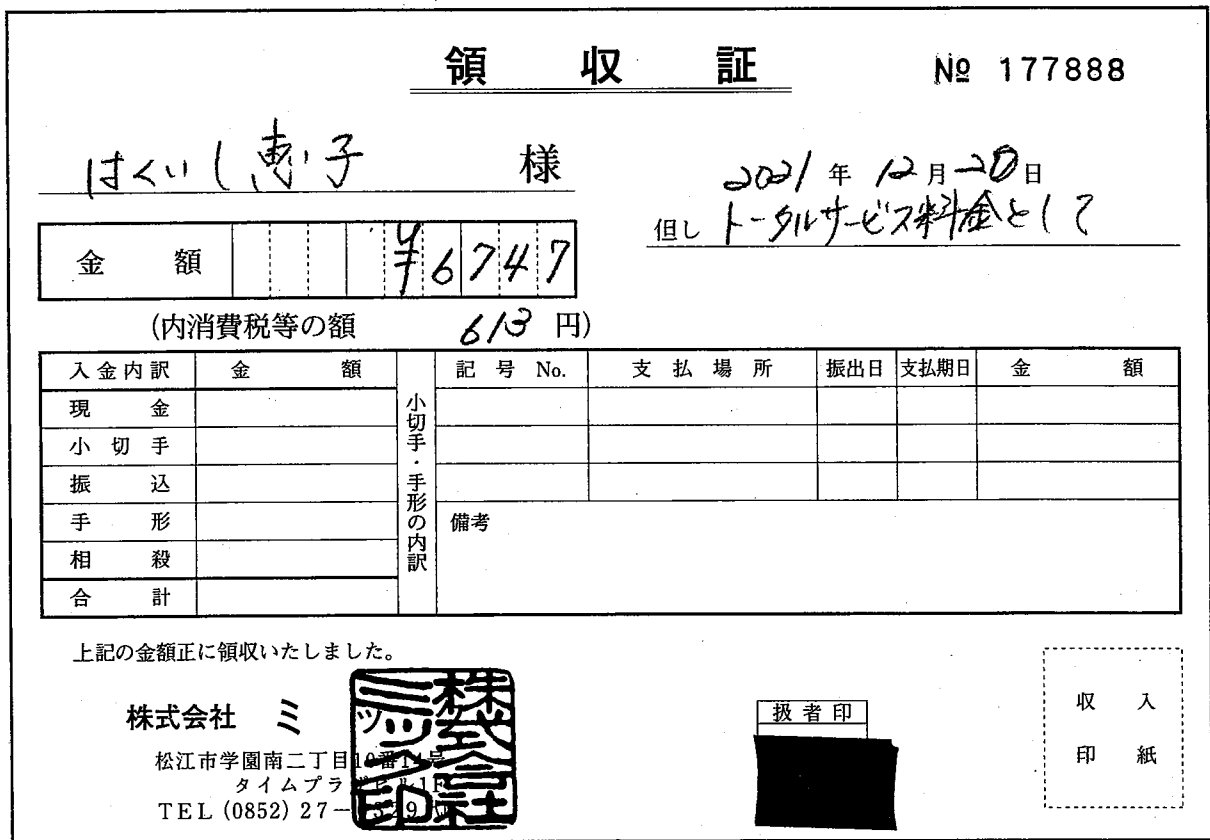 領収証
№ 177888
はくいし恵子 様
2021年12月20日
但し トータルサービス料金として
金額 ¥6747
(内消費税等の額 613 円)
入金内訳 金額
現金
小切手
振込
手形
相殺
合計
小切手・手形の内訳
記号No. 支払場所 振出日 支払期日 金額
備考
上記の金額正に領収いたしました。
株式会社 ミ
松江市学園南二丁目
タイムプラ
TEL (0852) 27-
扱者印
収入
印紙